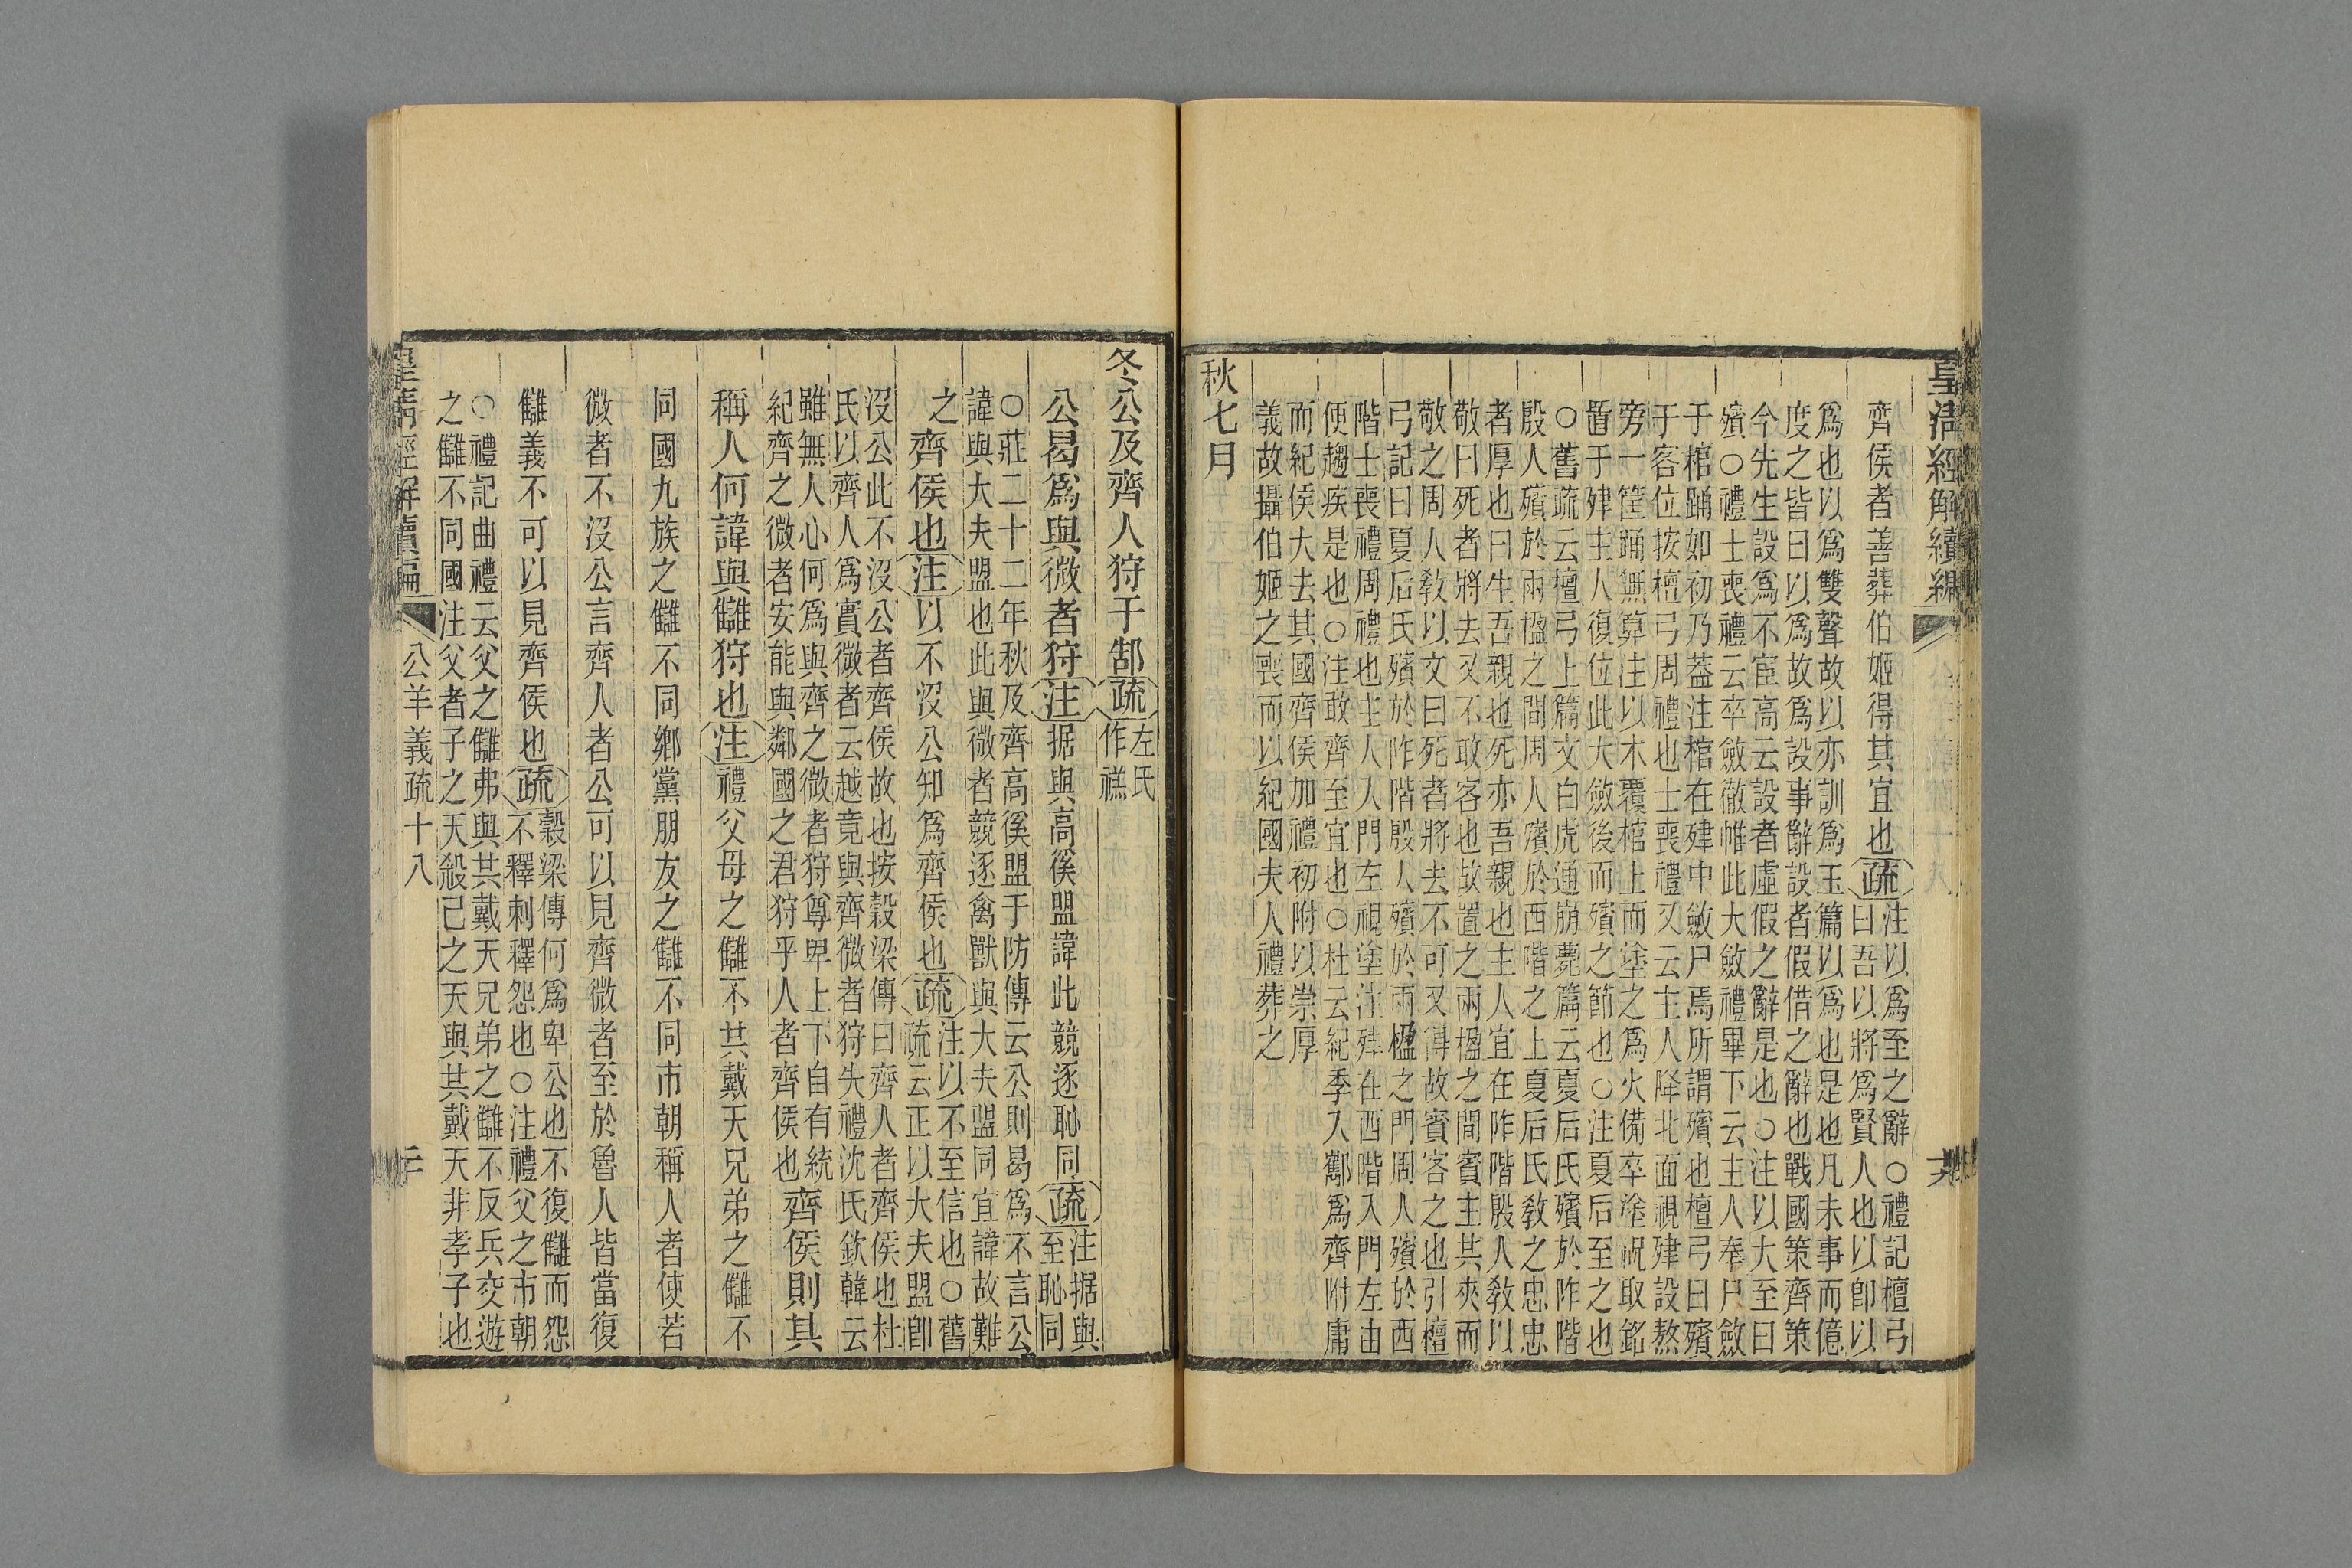 皇清經解續編
齊侯者善葬伯姬得其宜也疏注以爲至之辭○禮記檀弓
曰吾以將爲賢人也以卽以
爲也以爲雙聲故以亦訓爲玉篇以爲也是也凡未事而億
度之皆曰以爲故爲設事辭設者假借之辭也戰國策齊策
今先生設爲不宦高云設者虛假之辭是也○注以大至曰
殯○禮士喪禮云卒斂徹帷此大斂禮畢下云主人奉尸斂
于棺踊如初乃蓋注棺在肂中斂尸焉所謂殯也檀弓曰殯
于客位按檀弓周禮也士喪禮又云主人降北面視肂設熬
旁一筐踊無算注以木覆棺上而塗之爲火備卒塗祝取銘
置于肂主人復位此大斂後而殯之節也○注夏后至之也
○舊疏云檀弓上篇文白虎通崩薨篇云夏后氏殯於阼階
殷人殯於兩楹之間周人殯於西階之上夏后氏敎之忠忠
者厚也曰生吾親也死亦吾親也主人宜在阼階殷人敎以
敬曰死者將去又不敢客也故置之兩楹之間賓主其夾而
敬之周人敎以文曰死者將去不可又得故賓客之也引檀
弓記曰夏后氏殯於阼階殷人殯於兩楹之門周人殯於西
階士喪禮周禮也主人入門左視塗注肂在西階入門左由
便趨疾是也○注敢齊至宜也○杜云紀季入酅爲齊附庸
而紀侯大去其國齊侯加禮初附以崇厚
義故攝伯姬之喪而以紀國夫人禮葬之
秋七月
冬公及齊人狩于郜疏左氏
作禚
公曷爲與微者狩注据與高徯盟諱此競逐恥同疏注据與
至恥同
○莊二十二年秋及齊高徯盟于防傳云公則曷爲不言公
諱與大夫盟也此與微者競逐禽獸與大夫盟同宜諱故難
之齊侯也注以不沒公知爲齊侯也疏注以不至信也○舊
疏云正以大夫盟卽
沒公此不沒公者齊侯故也按穀梁傳曰齊人者齊侯也杜
氏以齊人爲實微者云越竟與齊微者狩失禮沈氏欽韓云
雖無人心何爲與齊之微者狩尊卑上下自有統
紀齊之微者安能與鄰國之君狩乎人者齊侯也齊侯則其
稱人何諱與讎狩也注禮父母之讎不共戴天兄弟之讎不
同國九族之讎不同鄉黨朋友之讎不同市朝稱人者使若
微者不沒公言齊人者公可以見齊微者至於魯人皆當復
讎義不可以見齊侯也疏穀梁傳何爲卑公也不復讎而怨
不釋刺釋怨也○注禮父之市朝
○禮記曲禮云父之讎弗與共戴天兄弟之讎不反兵交遊
之讎不同國注父者子之天殺己之天與共戴天非孝子也
皇淸經解續編 公羊義疏十八